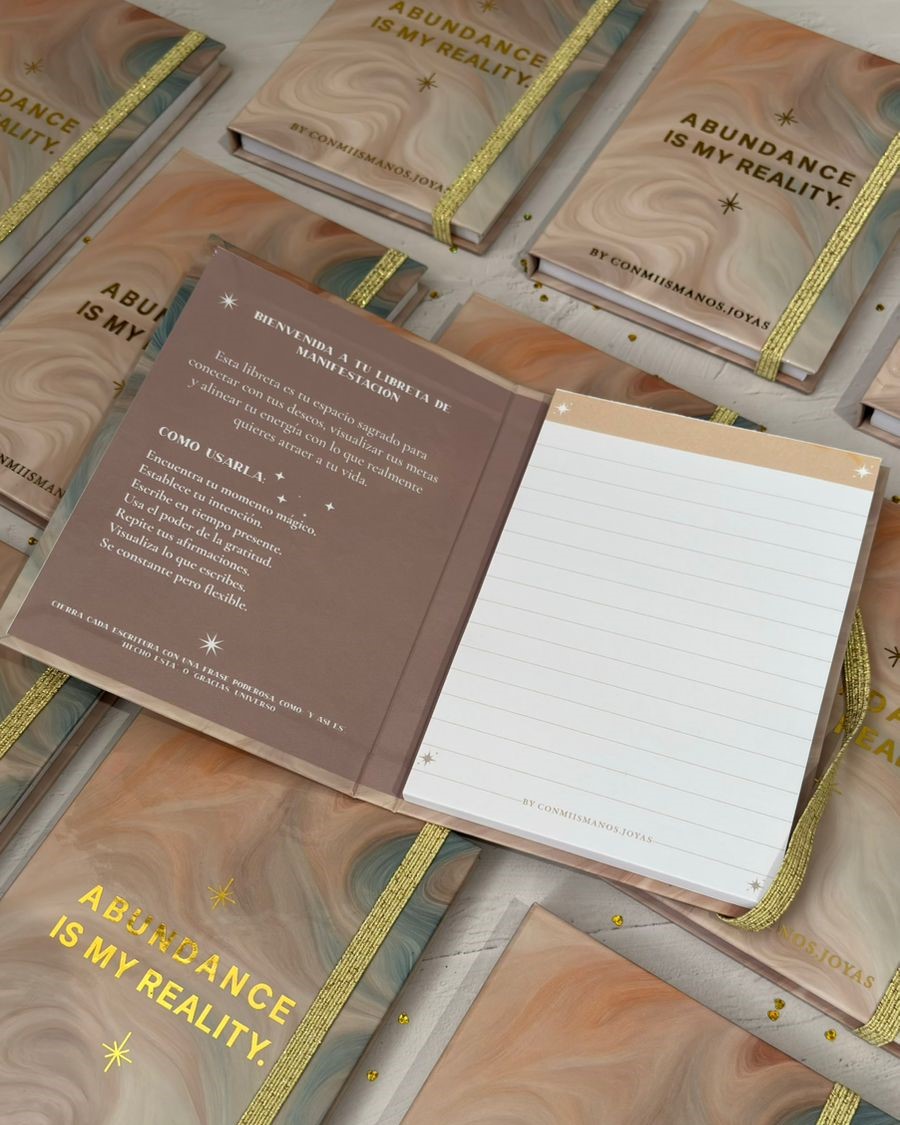 DANCE
ALITY.
ABUNDANCE
IS MY REALITY.
BY CONMIISMANOS.JOYAS
ABUNDANCE
IS MY REALITY.
BY CONMIISMANOS.JOYAS
ABUN
IS MY
NMIISMAN
BIENVENIDA A TU LIBRETA DE
MANIFESTACION
Esta libreta es tu espacio sagrado para
conectar con tus deseos, visualizar tus metas
y alinear tu energía con lo que realmente
quieres atraer a tu vida.
COMO USARLA:
Encuentra tu momento mágico.
Establece tu intención.
Escribe en tiempo presente.
Usa el poder de la gratitud.
Repite tus afirmaciones.
Visualiza lo que escribes.
Se constante pero flexible.
CIERRA CADA ESCRITURA CON UNA FRASE PODEROSA COMO: "Y ASI ES"
"HECHO ESTA" O "GRACIAS UNIVERSO"
BY CONMIISMANOS.JOYAS
NOS.JOYAS
ABUNDANCE
IS MY REALITY.